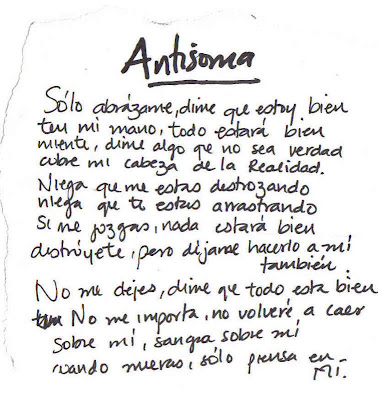 Antisoma
Sólo abrázame, dime que estoy bien
ten mi mano, todo estará bien
miente, dime algo que no sea verdad
cubre mi cabeza de la Realidad.
Niega que me estas destrozando
niega que te estas arrastrando
Si me juzgas, nada estará bien
destrúyete, pero déjame hacerlo a mí
también.
No me dejes, dime que todo esta bien
No me importa, no volveré a caer
Sobre mí, sangra sobre mí
cuando mueras, sólo piensa en
Mí.